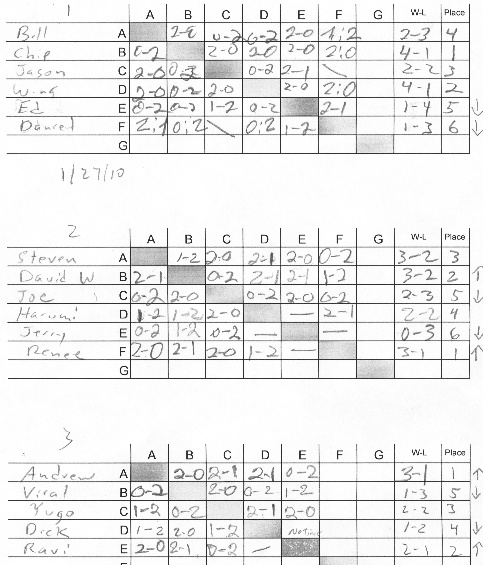 1
A B C D E F G W-L Place
Bill A 2-0 0-2 0-2 2-0 1:2 2-3 4
Chip B 0-2 2-0 2-0 2-0 2:0 4-1 1
Jason C 2-0 0-2 0-2 2-1 \ 2-2 3
Wing D 2-0 0-2 2-0 2-0 2:0 4-1 2
Ed E 0-2 0-2 1-2 0-2 2-1 1-4 5 ↓
F 2:1 0:2 \ 0:2 1-2 1-3 6 ↓
G
1/27/10
2
A B C D E F G W-L Place
Steven A 1-2 2-0 2-1 2-0 0-2 3-2 3
David W B 2-1 0-2 2-1 2-1 1-2 3-2 2 ↑
Joe C 0-2 2-0 0-2 2-0 0-2 2-3 5 ↓
Harumi D 1-2 1-2 2-0 — 2-1 2-2 4
Jerry E 0-2 1-2 0-2 — — 0-3 6 ↓
Renee F 2-0 2-1 2-0 1-2 — 3-1 1 ↑
G
3
A B C D E F G W-L Place
Andrew A 2-0 2-1 2-1 0-2 3-1 1 ↑
Viral B 0-2 2-0 0-2 1-2 1-3 5 ↓
Yugo C 1-2 0-2 2-1 2-0 2-2 3
Dick D 1-2 2-0 1-2 1-2 4 ↓
Ravi E 2-0 2-1 0-2 — 2-1 2 ↑